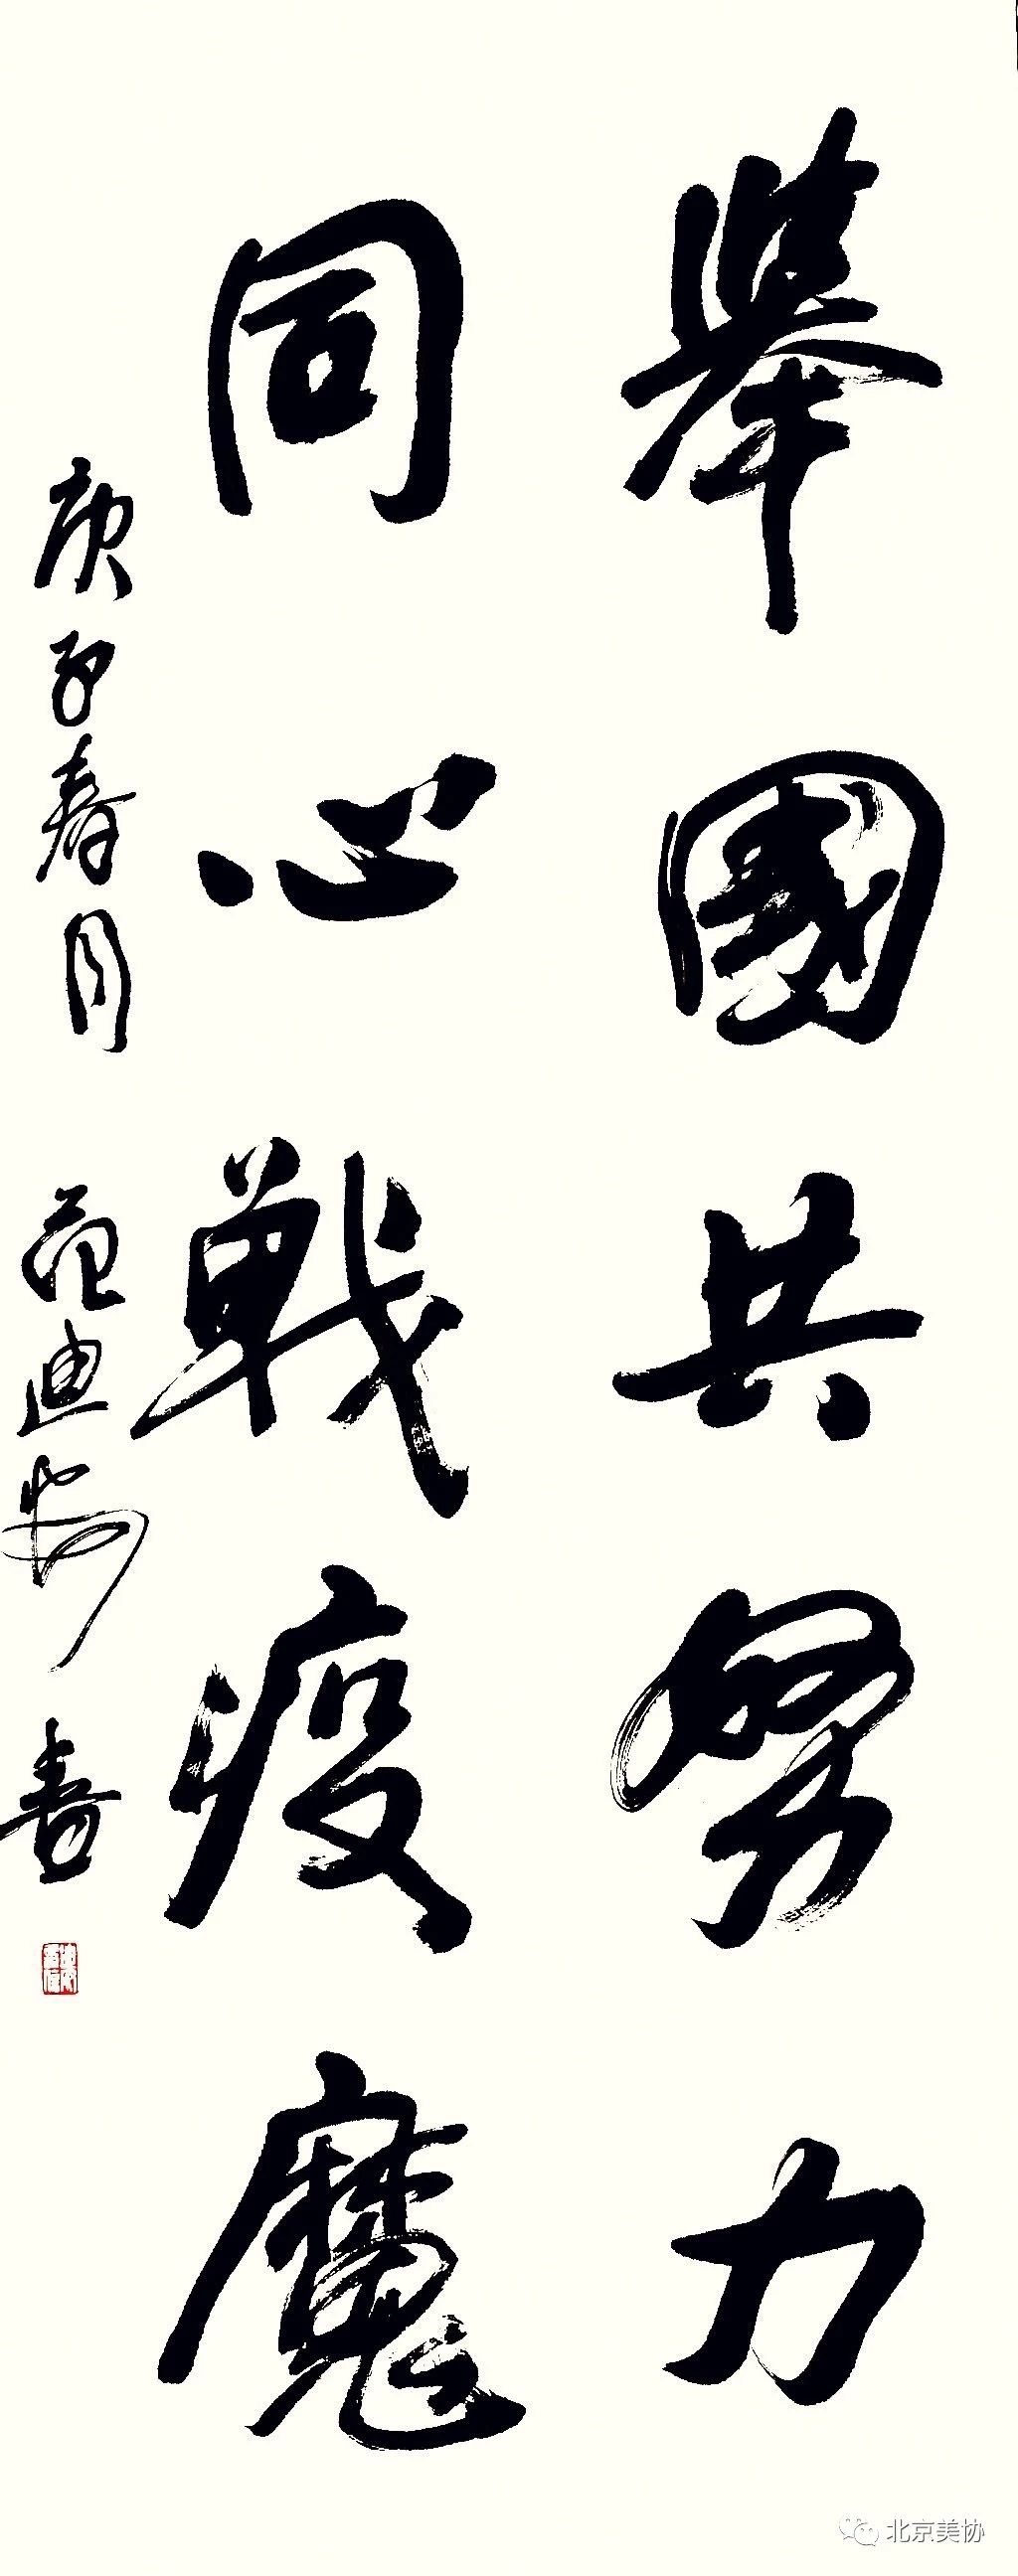 舉國共努力
同心戰疫魔
庚子春月 范迪安書
北京美协